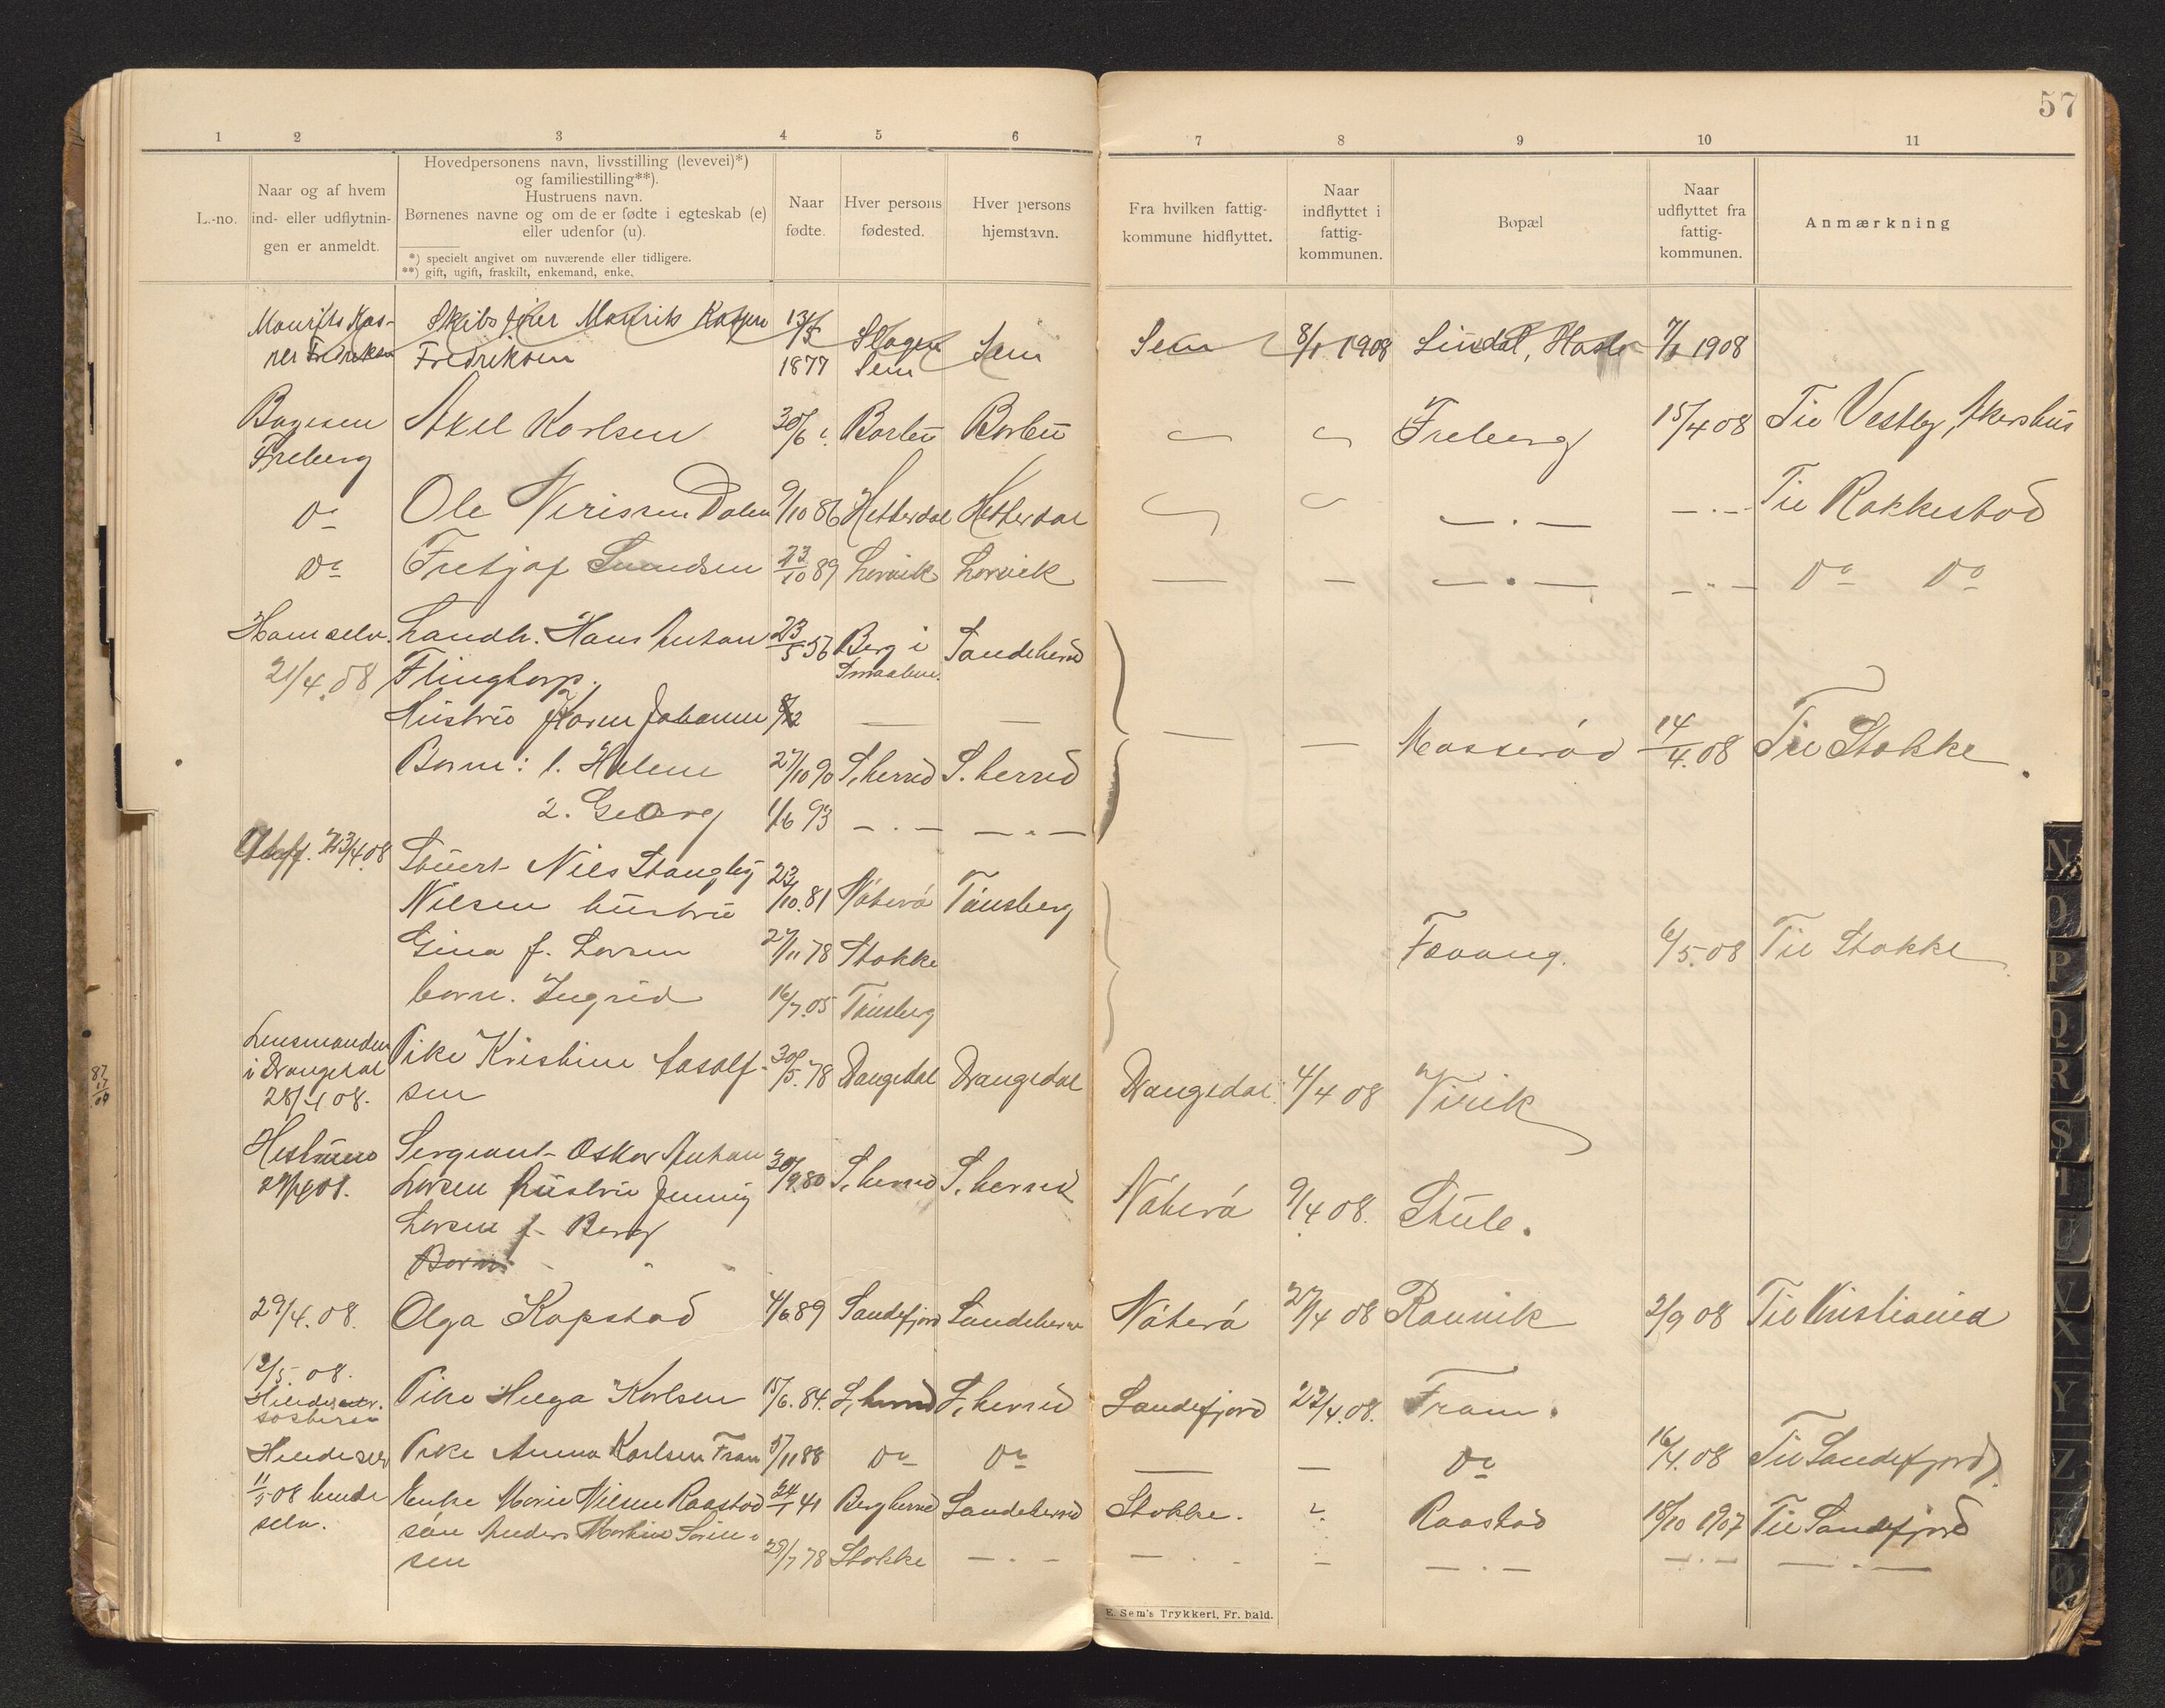 57
1 2 3 4 5 6 7 8 9 10 11
L.-no.
Naar og af hvem
ind- eller udflytnin-
gen er anmeldt.
Hovedpersonens navn, livsstilling (levevei)*)
og familiestilling**).
Hustruens navn.
Børnenes navne og om de er fødte i egteskab (e)
eller udenfor (u).
*) specielt angivet om nuværende eller tidligere.
**) gift, ugift, fraskilt, enkemand, enke.
Naar
fødte.
Hver persons
fødested.
Hver persons
hjemstavn.
Fra hvilken fattig-
kommune hidflyttet.
Naar
indflyttet i
fattig-
kommunen.
Bopæl
Naar
udflyttet fra
fattig-
kommunen.
Anmærkning
Fredriksen 1877 Sem Sem Sem 8/1 1908 Lindal, Hasle 1908
Axel Karlsen 30/6 Barbu Barbu Freberg 15/4 08 Til Vestby, Akershus
Freberg
Do Ole Dalen 9/10 86 Hetterdal Hetterdal — . — — . — Til Rakkestad
Do Fretjof 23/10 89 Larvik Larvik — — — . — — . — Do Do
Ham selv. Landh. Hans Anton 23/5 56 Berg i Sandeherred
21/4 08 Flingtorp. Smaalene.
Hustru Karen Johanne — —
— — Masserød 14/4 08 Til Stokke
Børn: 1. Helene 27/10 90 S. herred S. herred
2. Georg 1/6 93 — . — — . —
23/4 08 Stuert Nils Stangeby 23
Nilsen hustru /10. 81 Nøterø Tønsberg
Gina f. Larsen 27/11 78 Stokke Fevang. 6/5. 08 Til Stokke
barn. Ingrid 16/7. 05 Tønsberg
Lensmanden
i Drangedal Pike Kristine Aasolf- 30/5. 78 Drangedal Drangedal Drangedal 4/4 08 Virik
28/4 08. sen
Sergeant Oskar Anton 30/9. 80 S. herred S. herred
Larsen hustru Jenny Nøterø 9/4 08. Stule.
Larsen f. Berg
Børn
29/4. 08. Olga Kapstad 4/6 89 Sandefjord Sandeherred Nøterø 27/4 08 Ranvik 2/9 08 Til Kristiania
12/5. 08.
Pike Helga Karlsen 15/6. 84. S. herred S. herred Sandefjord 22/4. 08. Fram.
søsteren
Hende selv Pike Anna Karlsen Fram 5/11 88 Do Do — — Do 16/4. 08 Til Sandefjord
11/5 08 hende Enke Marie Nilsen Raastad 24/1 41 Berg herred Sandeherred Stokke. Raastad 18/10 1907 Til Sandefjord
selv. søn Anders Martin Søren-
sen 29/7 78 Stokke — . — — . — — — . — — . — — . —
E. Sem's Trykkeri, Fr. hald.
87
17
09
N
O
P
Q
R
S
T
U
V
X
Y
Z
Ø